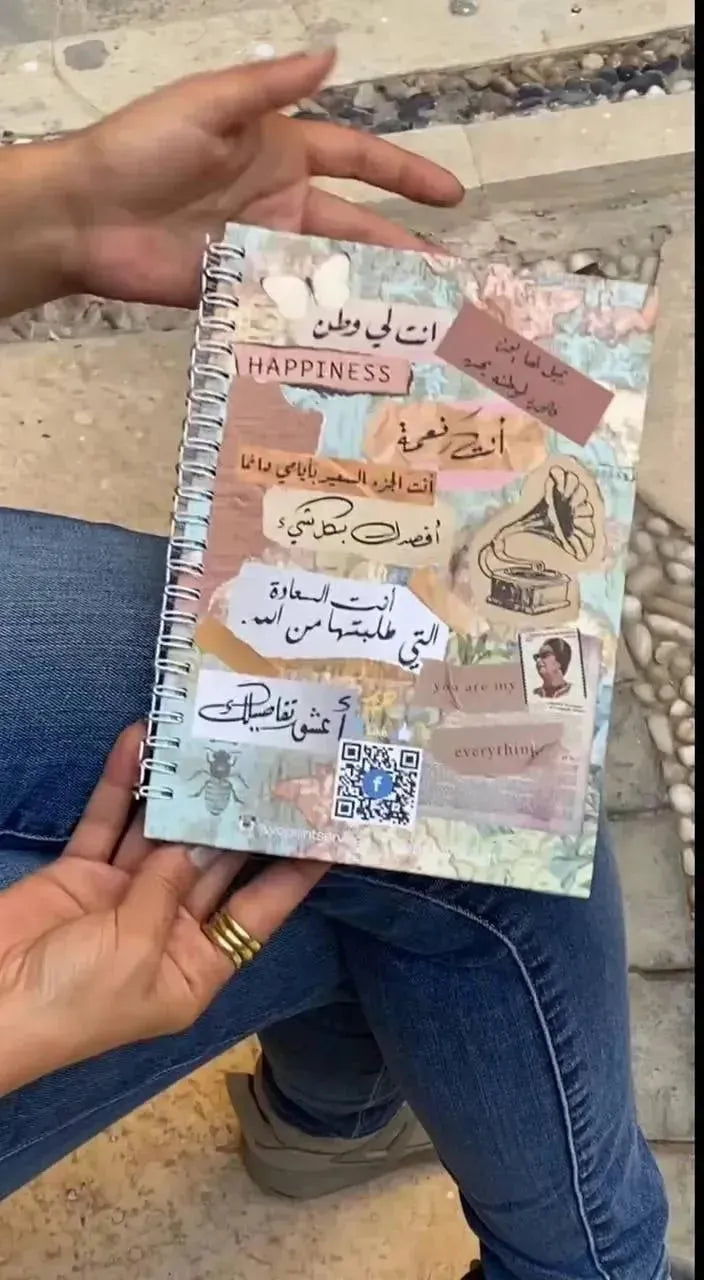 انت لي وطن
HAPPINESS
أنت نعمة
أنت الجزء السعيد بأيامي دائما
أقصدك بكل شيء
أنت السعادة
التي طلبتها من الله.
أعشق تفاصيلك
you are my
everything